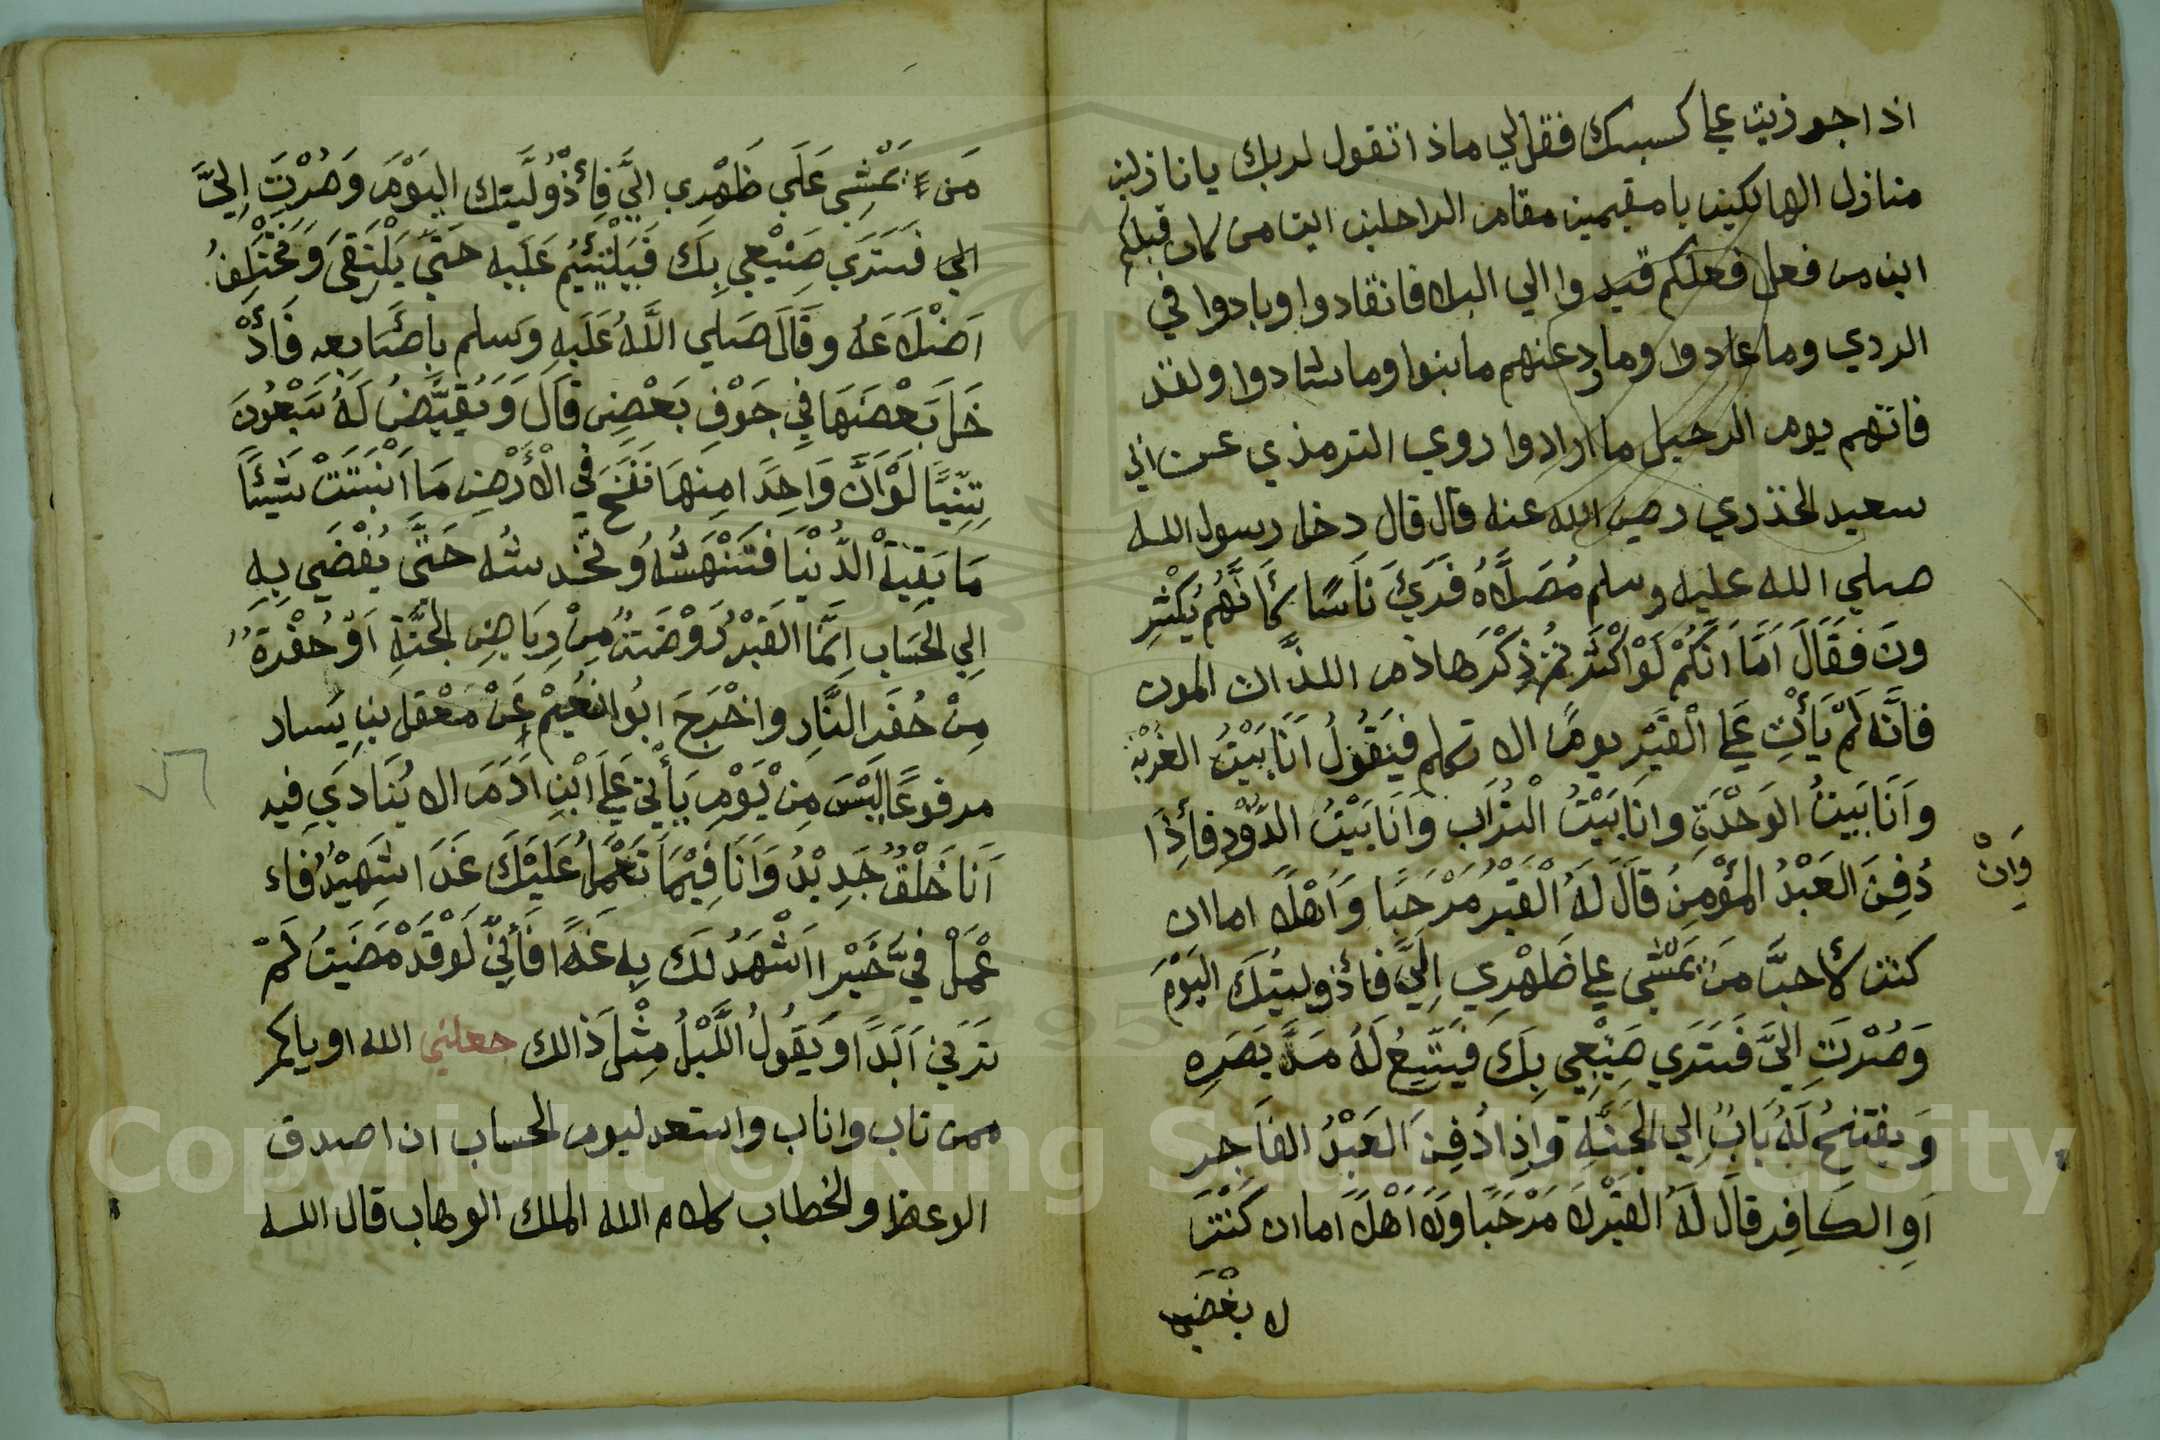 اذا جوزيت علي كسبك فقل لي ماذا تقول لربك يا نازلين
منازل الهالكين يا مقيمين مقام الراحلين اين من كان قبلكم
اين من فعل فعلكم قيدوا الي البلا فانقادوا وبادوا في
الردي وما عادوا وما رد عنهم ما بنوا وما شادوا ولقد
فاتهم يوم الرحيل ما ارادوا روي الترمذي عن ابي
سعيد الخذري رضي الله عنه قال قال دخل رسول الله
صلي الله عليه وسلم مُصَلَّاهُ فَرَيَ نَاسًا كأَنَّهُم يُكْثِرِ
ونَ فَقَالَ اَمَا اَنَّكُمْ لَوْ اكْثَرتُم ذِكْرَ هاذم اللذّات الموت
فَاِنَّه لَمْ يَأْتِ عَلي الْقَبْرِ يومًا الا تكلم فَيَقُولُ اَنَا بَيْتُ الغُرْبَة
وَاَنَا بَيتُ الوَحْدَةِ وانَا بَيْتُ الْتُرَابِ وَاَنَا بَيْتُ الدُّوْدِ فَأِذَا
دُفِنَ العَبْدُ المؤْمِنُ قَالَ لَهُ الْقَبْرُ مَرْحَبًا وَاَهْلًا اما ان
كنت لأحبَّ مَن يَمْشِي علي ظَهْرِي اِلَيَّ فأذ وليتُكَ اليَوْمَ
وَصُرْتَ اِلَيَّ فَسَتَرَي صَنِيْعِي بِكَ فَيَتَّسِعُ لَهُ مَدَّ بَصَرِهِ
وَيفتحُ لَهُ بَابٌ اِلي الجَنَّةِ وَاِذَا دُفِنَ العَبْدُ الفَاجر
اَوِ الكَافِر قَالَ لَهُ القَبْر لَا مَرْحَبًا وَلَا اَهْلًا اَما ان كُنْتَ
لا بغْضَ
وَاِنْ
مَن يَمْشِي عَلَي ظَهْرِي اِلَيَّ فَأِذْ وُلِّيتك اليَوْمَ وَصُرْتَ اِلَيَّ
الي فَسَتَرَي صَنِيْعِي بِكَ فَيَلْتَئِمُ عَلَيه حَتَّي يَلْتَقيَ وَتَخْتَلِفُ
اَضْلَاعَهُ وقَالَ صَلي اللَّهُ عَلَيهِ وَسلم باصَابعه فَأَدْ
خَلَ بَعْضَهَا فِي جَوْفِ بَعْضِ قَالَ وَيُقَيَّضُ لَهُ سَبْعُونَ
تِنِّيًا لَوْ اَنَّ وَاحِدَا مِنهَا نَفَخَ فِي الْأَرْضِ مَا اَنْبَتَتْ شَيْئًا
مَا بَقِيَةْ الدُّنْيَا فَتَنْهَشُهُ وُتَخْدشُه حَتَّي يُفْضَي بِهِ
اِلي الحَسَاب اِنَّمَا القَبْرُ رَوْضَةٌ مِنْ رِيَاضِ الجَنَّةِ اَوْ حُفْرَةٌ
مِنْ حُفَرِ النَّارِ واخْرَجَ ابُوا نعُيْم عَنْ مَعْقل بن يَسار
مرفوعًا لَيْسَ مِنْ يَوْمٍ يَأْتِي عَلَي ابْنِ اَدَمَ الا يُنَادَي فيه
اَنَا خَلْقٌ جَدِيْدٌ وَاَنَا فِيْمَا تَعْمَلُ عَلَيْكَ غَدَا شَهِيْدٌ فاء
عْمَلْ فيَّ خَيْرا اَشْهَدُ لَكَ بِهِ غَدًا فَأِنِّي لَوْ قَدْ مَضَيتُ لَمْ
تَرَنِي اَبَدًا وَيَقُولُ اللَّيْلُ مِثْلَ ذَالك جعلني الله اوياكم
ممن تاب واناب واستعد ليوم الحساب ان اصدق
الوعظ والخطاب كلام الله الملك الوهاب قال الله